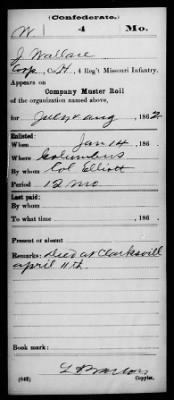 (Confederate.)
W 4 Mo.
J Wallace
Corp, Co. H, 4 Reg't Missouri Infantry.
Appears on
Company Muster Roll
of the organization named above,
for July & Aug, 1862
Enlisted:
When Jan 14, 186 .
Where Columbus
By whom Col Elliott
Period 12 mo
Last paid:
By whom
To what time , 186 .
Present or absent
Remarks: Died at Clarksvill
april 11th.
Book mark:
(642) Copyist.